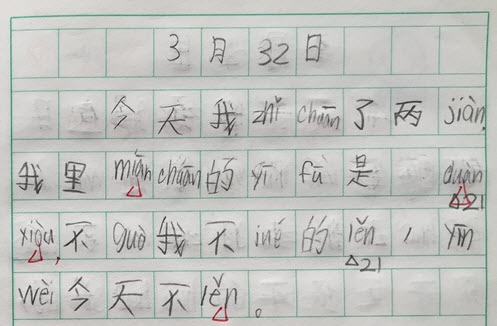 3月32日
今天我zhǐ chuān了两jiàn,
我里miàn chuān的yī fú是duǎn 21
xiòu,不guò我不jué的lěn,yīn 21
wèi今天不lěn。